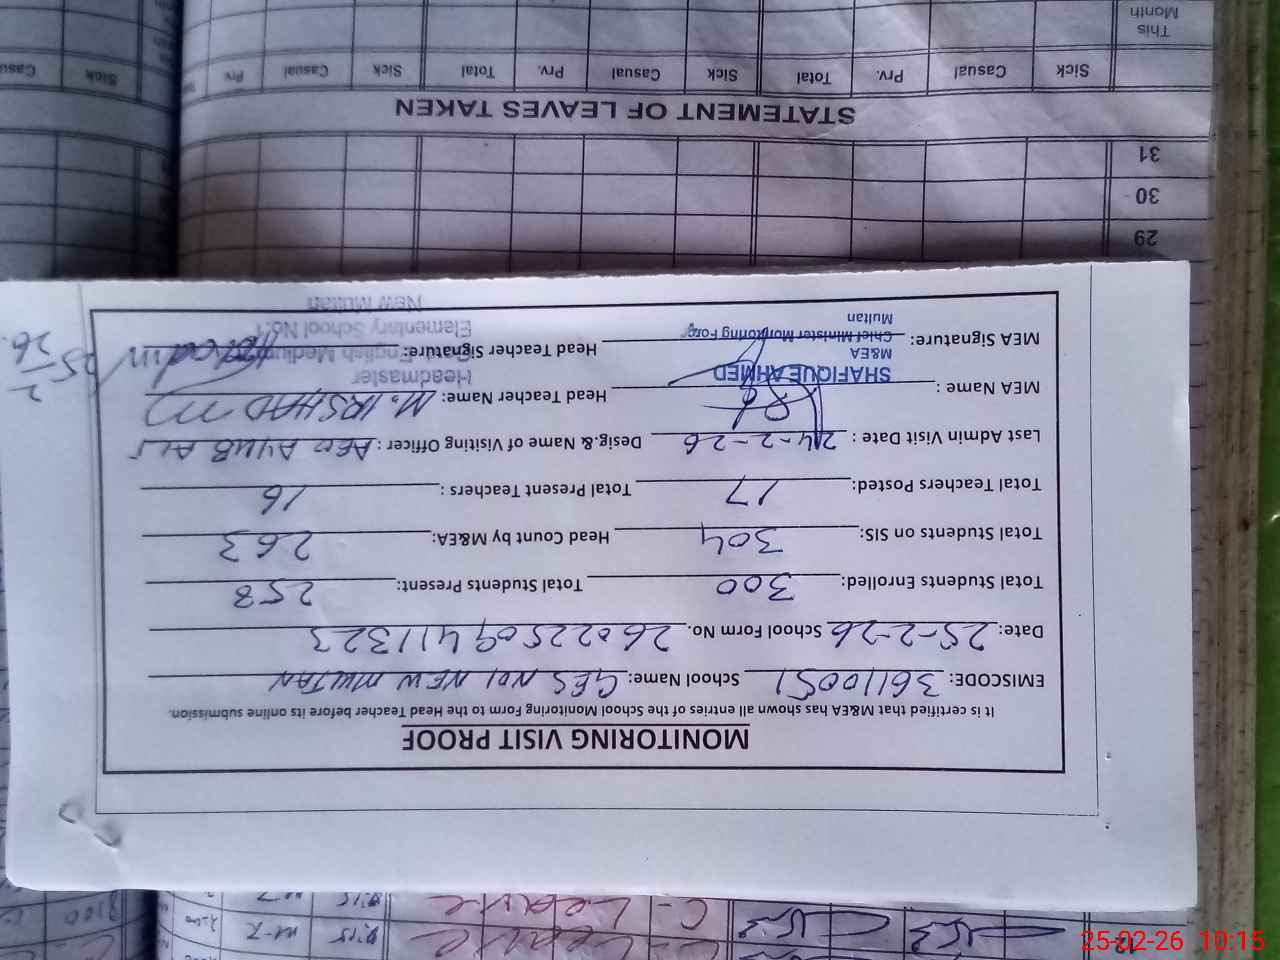 MONITORING VISIT PROOF
It is certified that M&EA has shown all entries of the School Monitoring Form to the Head Teacher before its online submission.
EMISCODE: 36110051 School Name: GES NO1 NEW MULTAN
Date: 25-2-26 School Form No. 260225094411323
Total Students Enrolled: 300 Total Students Present: 258
Total Students on SIS: 304 Head Count by M&EA: 263
Total Teachers Posted: 17 Total Present Teachers : 16
Last Admin Visit Date : 24-2-26 Desig.& Name of Visiting Officer : AEO AYUB ALI
MEA Name : Head Teacher Name: M. IRSHAD
SHAFIQUE AHMED
M&EA
Chief Minister Monitoring Force
Multan
MEA Signature: Head Teacher Signature:
Headmaster
Govt. English Medium
Elementary School No.1
New Multan
25/2/26
29
30
31
STATEMENT OF LEAVES TAKEN
Sick Casual Prv. Total Sick Casual Prv. Total Sick Casual Prv. Sick Casual
This Month
C-Leave
C-Leave
25-02-26 10:15